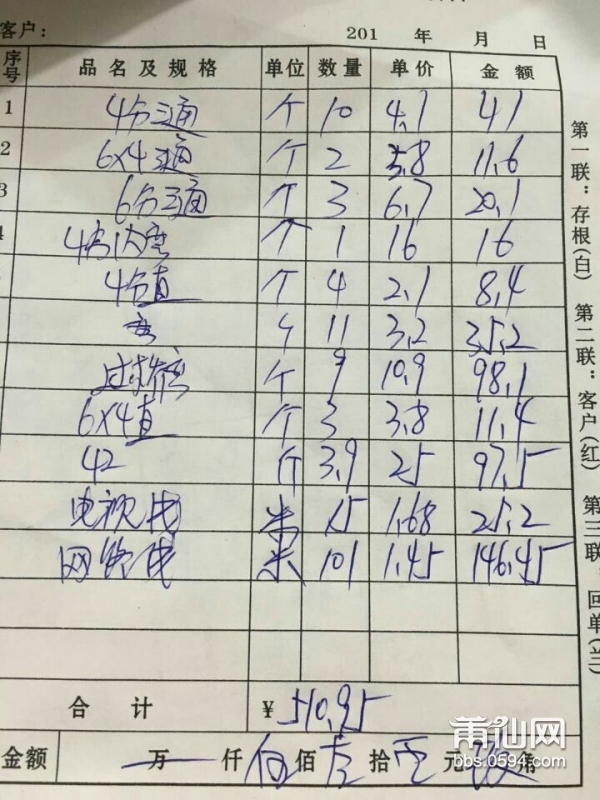 客户： 201 年 月 日
序号 品名及规格 单位 数量 单价 金额
1 4分三通 个 10 4.1 41
2 6x4三通 个 2 5.8 11.6
3 6分三通 个 3 6.7 20.1
4分 个 1 16 16
4分直 个 4 2.1 8.4
11 3.2 35.2
过 个 9 10.9 98.1
6x4直 个 3 3.8 11.4
42 个 3.9 25 97.5
电视线 米 15 1.68 25.2
网络线 米 101 1.45 146.45
合计 ¥510.95
金额 万 仟 伍 佰 拾 元 角
第一联：存根(白) 第二联：客户(红) 第三联：回单(兰)
莆仙网
bbs.0594.com